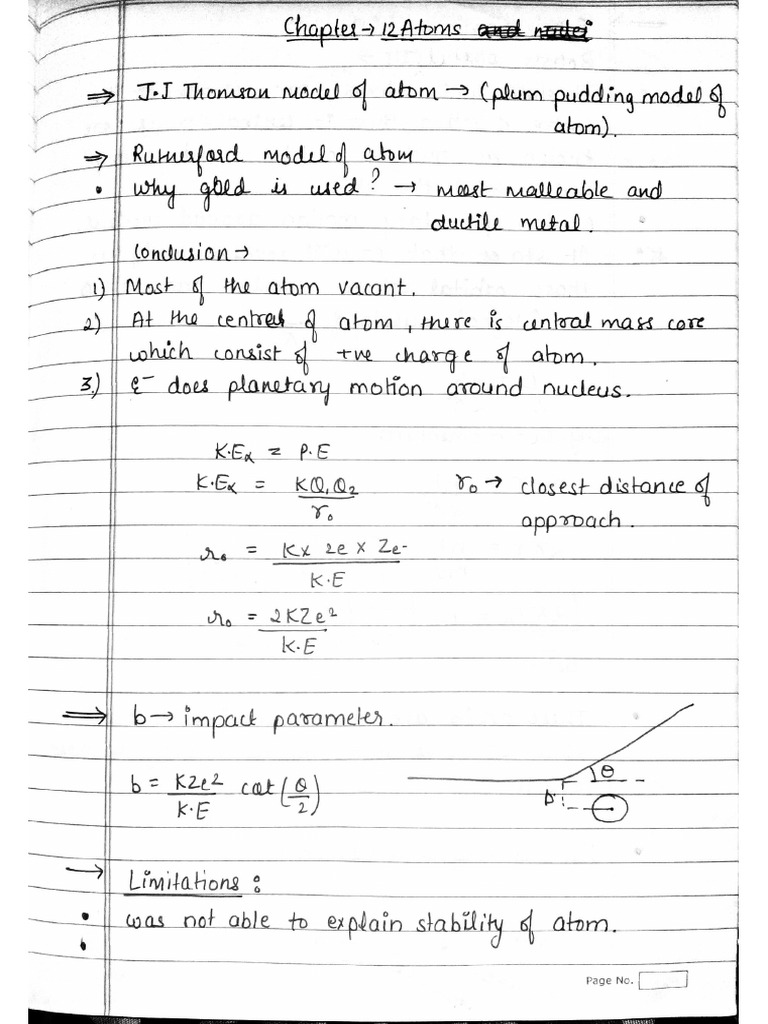 Chapter → 12 Atoms and nuclei
⇒ J.J Thomson Model of atom → (plum pudding model of
atom).
⇒ Rutherford model of atom
• why gold is used? → most malleable and
ductile metal.
Conclusion →
1) Most of the atom vacant.
2) At the centre of atom, there is central mass core
which consist of +ve charge of atom.
3.) e⁻ does planetary motion around nucleus.
K.Eα = P.E
K.Eα = KQ₁Q₂ / r₀   r₀ → closest distance of
approach.
r₀ = K x 2e x Ze / K.E
r₀ = 2KZe² / K.E
⇒ b → impact parameter.
b = KZe² / K.E cot (θ/2)
θ
b
→ Limitations :
• was not able to explain stability of atom.
•
Page No.